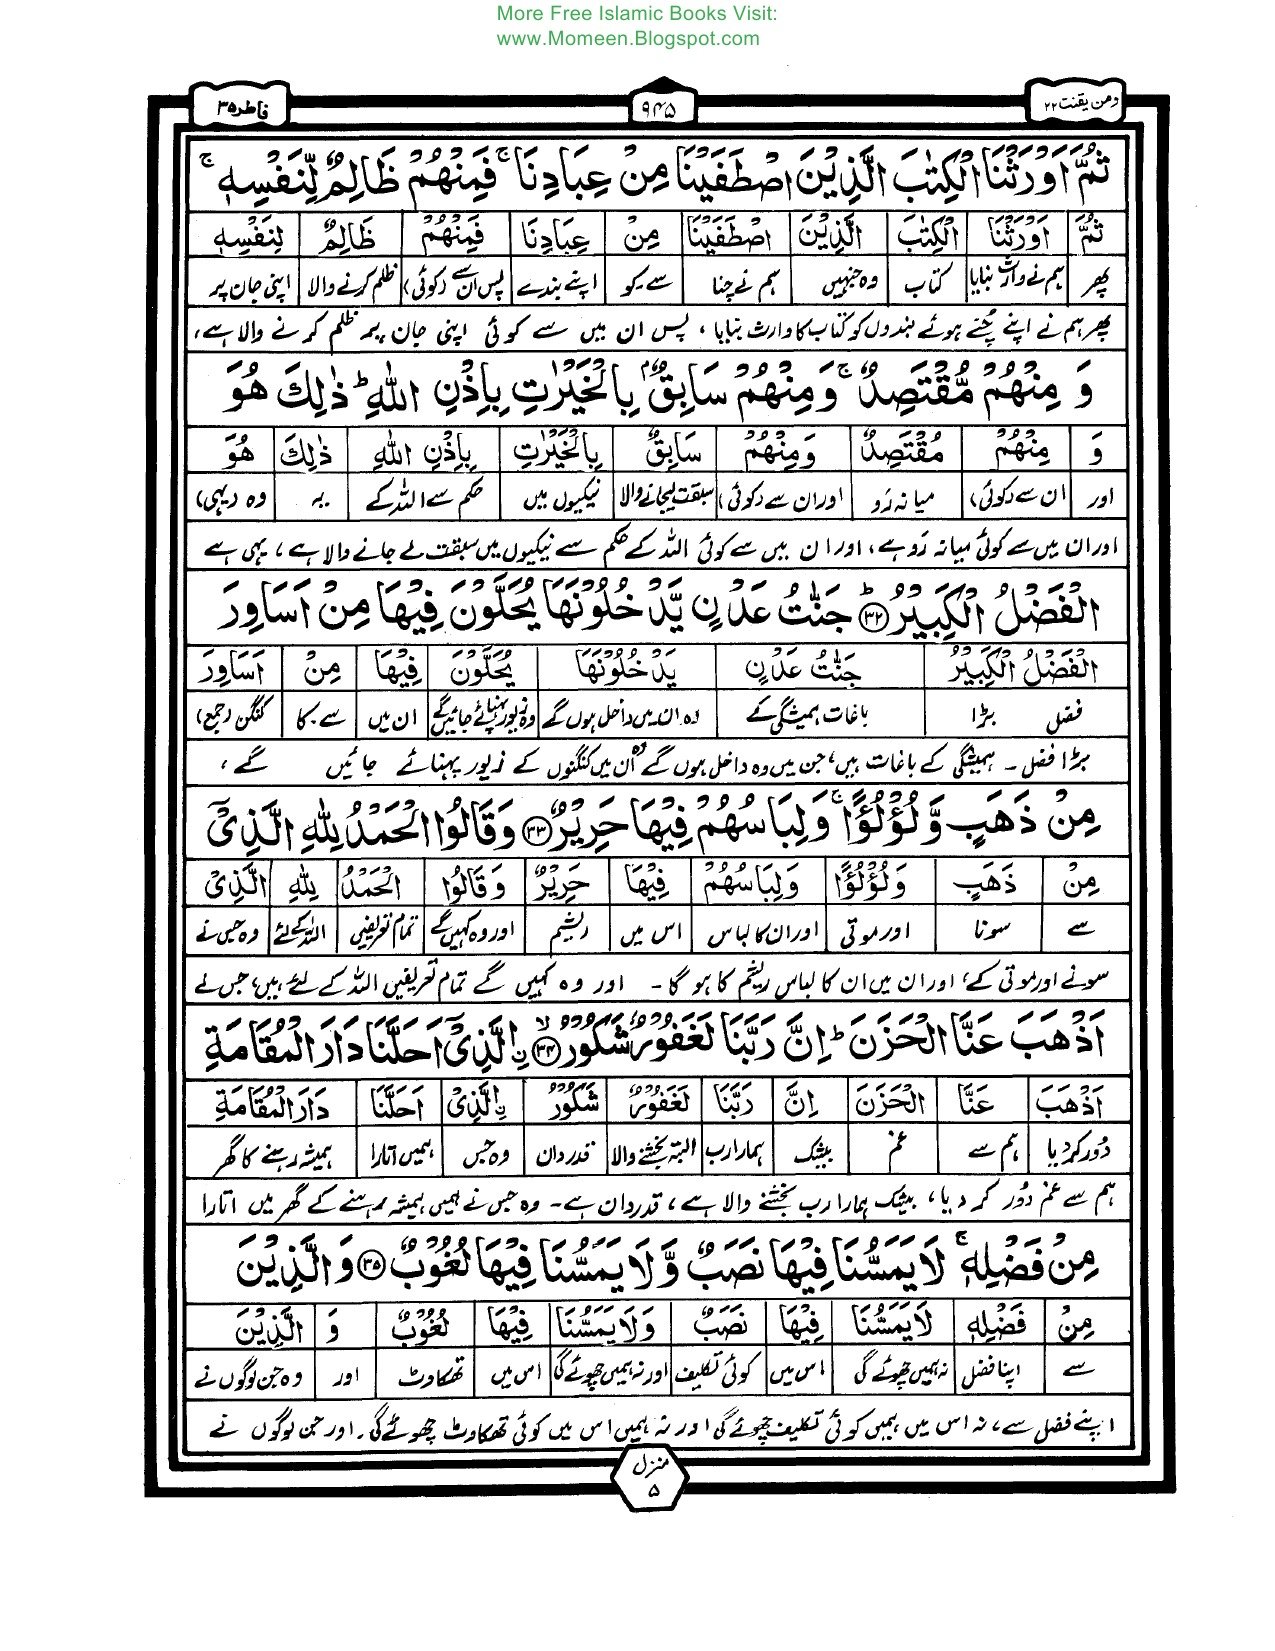 More Free Islamic Books Visit:
www.Momeen.Blogspot.com
ومن یقنت ۲۲
۹۴۵
فاطر ۳۵
ثُمَّ اَوْرَثْنَا الْكِتٰبَ الَّذِيْنَ اصْطَفَيْنَا مِنْ عِبَادِنَا ۚ فَمِنْهُمْ ظَالِمٌ لِّنَفْسِهٖ ۚ
ثُمَّ اَوْرَثْنَا الْكِتٰبَ الَّذِيْنَ اصْطَفَيْنَا مِنْ عِبَادِنَا فَمِنْهُمْ ظَالِمٌ لِنَفْسِهٖ
پھر ہم نے وارث بنایا کتاب وہ جنہیں ہم نے چنا سے۔کو اپنے بندے پس ان سے (کوئی) ظلم کرنے والا اپنی جان پر
پھر ہم نے اپنے چُنے ہوئے بندوں کو کتاب کا وارث بنایا، پس ان میں سے کوئی اپنی جان پر ظلم کرنے والا ہے،
وَ مِنْهُمْ مُّقْتَصِدٌ ۚ وَمِنْهُمْ سَابِقٌۢ بِالْخَيْرٰتِ بِاِذْنِ اللّٰهِ ؕ ذٰلِكَ هُوَ
وَ مِنْهُمْ مُقْتَصِدٌ وَمِنْهُمْ سَابِقٌ بِالْخَيْرٰتِ بِاِذْنِ اللّٰهِ ذٰلِكَ هُوَ
اور ان سے (کوئی) میانہ رَو اور ان سے (کوئی) سبقت لیجانے والا نیکیوں میں حکم سے اللہ کے یہ وہ (یہی)
اور ان میں سے کوئی میانہ رَو ہے، اور ان میں سے کوئی اللہ کے حکم سے نیکیوں میں سبقت لے جانے والا ہے، یہی ہے
الْفَضْلُ الْكَبِيْرُ ؕ ۳۲ جَنّٰتُ عَدْنٍ يَّدْخُلُوْنَهَا يُحَلَّوْنَ فِيْهَا مِنْ اَسَاوِرَ
الْفَضْلُ الْكَبِيْرُ جَنّٰتُ عَدْنٍ يَدْخُلُوْنَهَا يُحَلَّوْنَ فِيْهَا مِنْ اَسَاوِرَ
فضل بڑا باغات ہمیشگی کے وہ ان میں داخل ہوں گے وہ زیور پہنائے جائیں گے ان میں سے۔کا کنگن (جمع)
بڑا فضل ۔ ہمیشگی کے باغات ہیں، جن میں وہ داخل ہوں گے وہ اُن میں کنگنوں کے زیور پہنائے جائیں گے،
مِنْ ذَهَبٍ وَّلُؤْلُؤًا ۚ وَلِبَاسُهُمْ فِيْهَا حَرِيْرٌ ۳۳ وَقَالُوا الْحَمْدُ لِلّٰهِ الَّذِيْٓ
مِنْ ذَهَبٍ وَلُؤْلُؤًا وَلِبَاسُهُمْ فِيْهَا حَرِيْرٌ وَقَالُوا الْحَمْدُ لِلّٰهِ الَّذِيْٓ
سے سونا اور موتی اور ان کا لباس اس میں ریشم اور وہ کہیں گے تمام تعریفیں اللہ کے لئے وہ جس نے
سونے اور موتی کے، اور ان میں ان کا لباس ریشم کا ہو گا ۔ اور وہ کہیں گے تمام تعریفیں اللہ کے لئے ہیں، جس نے
اَذْهَبَ عَنَّا الْحَزَنَ ؕ اِنَّ رَبَّنَا لَغَفُوْرٌ شَكُوْرُ ۙ ۳۴ ۨالَّذِيْٓ اَحَلَّنَا دَارَ الْمُقَامَةِ
اَذْهَبَ عَنَّا الْحَزَنَ اِنَّ رَبَّنَا لَغَفُوْرٌ شَكُوْرُ ۨالَّذِيْٓ اَحَلَّنَا دَارَ الْمُقَامَةِ
دُور کر دیا ہم سے غم بیشک ہمارا رب البتہ بخشنے والا قدر دان وہ جس ہمیں اتارا ہمیشہ رہنے کا گھر
ہم سے غم دُور کر دیا، بیشک ہمارا رب بخشنے والا ہے، قدر دان ہے۔ وہ جس نے ہمیں ہمیشہ رہنے کے گھر میں اتارا
مِنْ فَضْلِهٖ ۚ لَا يَمَسُّنَا فِيْهَا نَصَبٌ وَّلَا يَمَسُّنَا فِيْهَا لُغُوْبٌ ۳۵ وَ الَّذِيْنَ
مِنْ فَضْلِهٖ لَا يَمَسُّنَا فِيْهَا نَصَبٌ وَلَا يَمَسُّنَا فِيْهَا لُغُوْبٌ وَ الَّذِيْنَ
سے اپنا فضل نہ ہمیں چھوئے گی اس میں کوئی تکلیف اور نہ ہمیں چھوئے گی اس میں تھکاوٹ اور وہ جن لوگوں نے
اپنے فضل سے، نہ اس میں ہمیں کوئی تکلیف چھوئے گی اور نہ ہمیں اس میں کوئی تھکاوٹ چھوئے گی۔ اور جن لوگوں نے
منزل
۵